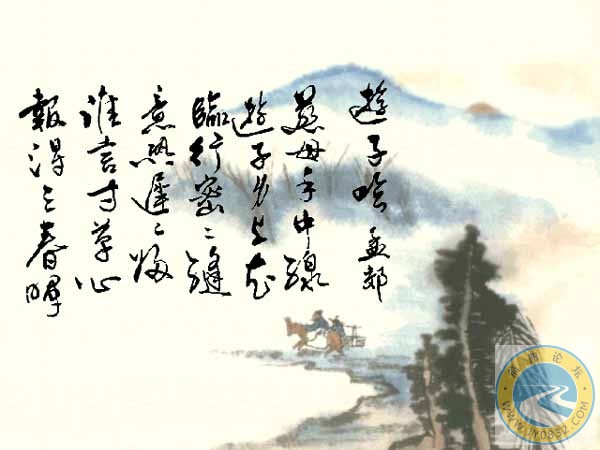 遊子吟 孟郊
慈母手中線
遊子身上衣
臨行密〻縫
意恐遲〻歸
誰言寸草心
報得三春暉
WWW.JY0832.COM